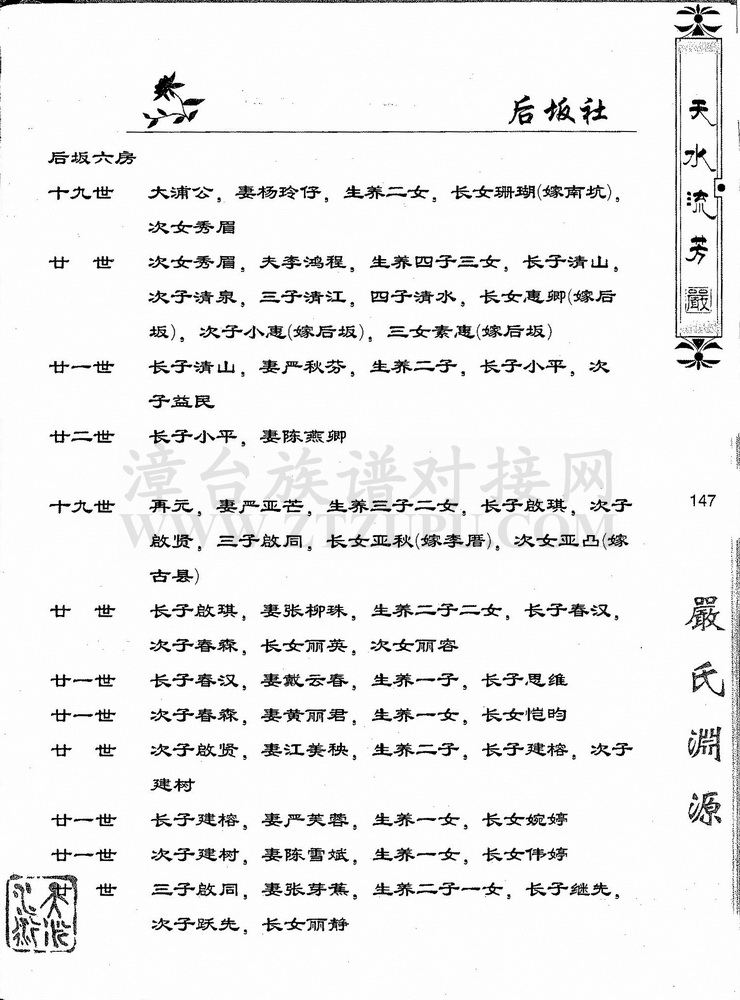 后坂社
后坂六房
十九世 大浦公，妻杨玲仔，生养二女，长女珊瑚(嫁南坑)，
次女秀眉
廿 世 次女秀眉，夫李鸿程，生养四子三女，长子清山，
次子清泉，三子清江，四子清水，长女惠卿(嫁后
坂)，次子小惠(嫁后坂)，三女素惠(嫁后坂)
廿一世 长子清山，妻严秋芬，生养二子，长子小平，次
子益民
廿二世 长子小平，妻陈燕卿
十九世 再元，妻严亚芒，生养三子二女，长子啟琪，次子
啟贤，三子啟同，长女亚秋(嫁李厝)，次女亚凸(嫁
古县)
廿 世 长子啟琪，妻张柳珠，生养二子二女，长子春汉，
次子春森，长女丽英，次女丽容
廿一世 长子春汉，妻戴云春，生养一子，长子思维
廿一世 次子春森，妻黄丽君，生养一女，长女恺昀
廿 世 次子啟贤，妻江美秧，生养二子，长子建榕，次子
建树
廿一世 长子建榕，妻严芙蓉，生养一女，长女婉婷
廿一世 次子建树，妻陈雪斌，生养一女，长女伟婷
廿 世 三子啟同，妻张芽蕉，生养二子一女，长子继先，
次子跃先，长女丽静
天水流芳
嚴
147
嚴氏淵源
漳台族谱对接网
WWW.ZTZUPU.COM